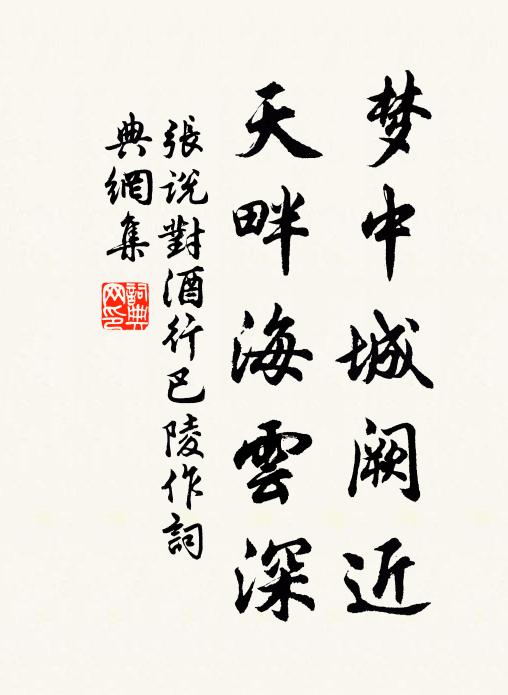 梦中城阙近
天畔海雲深
張説對酒行巴陵作詞
典網集
詞典
网印